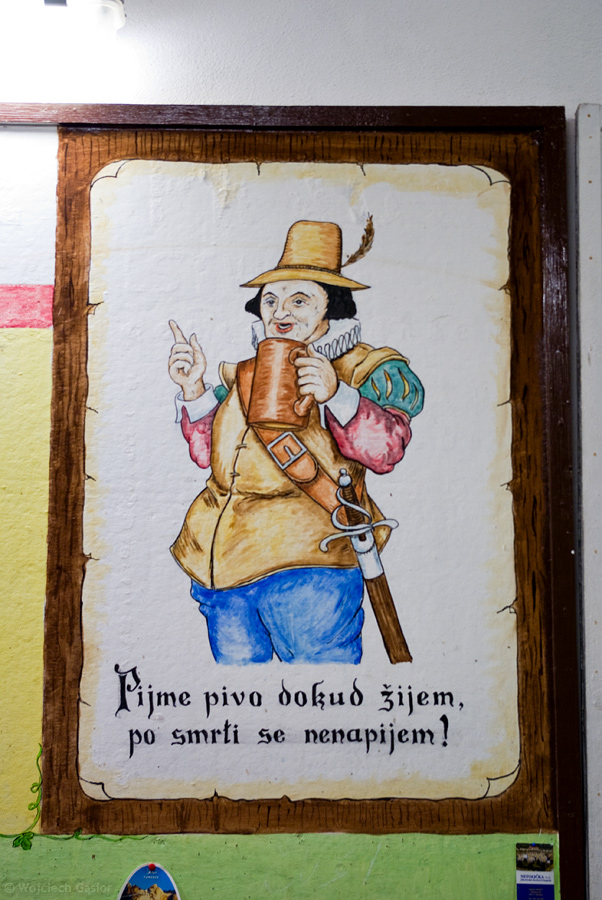 Pijme pivo dokud žijem,
po smrti se nenapijem!
© Wojciech Gąsior